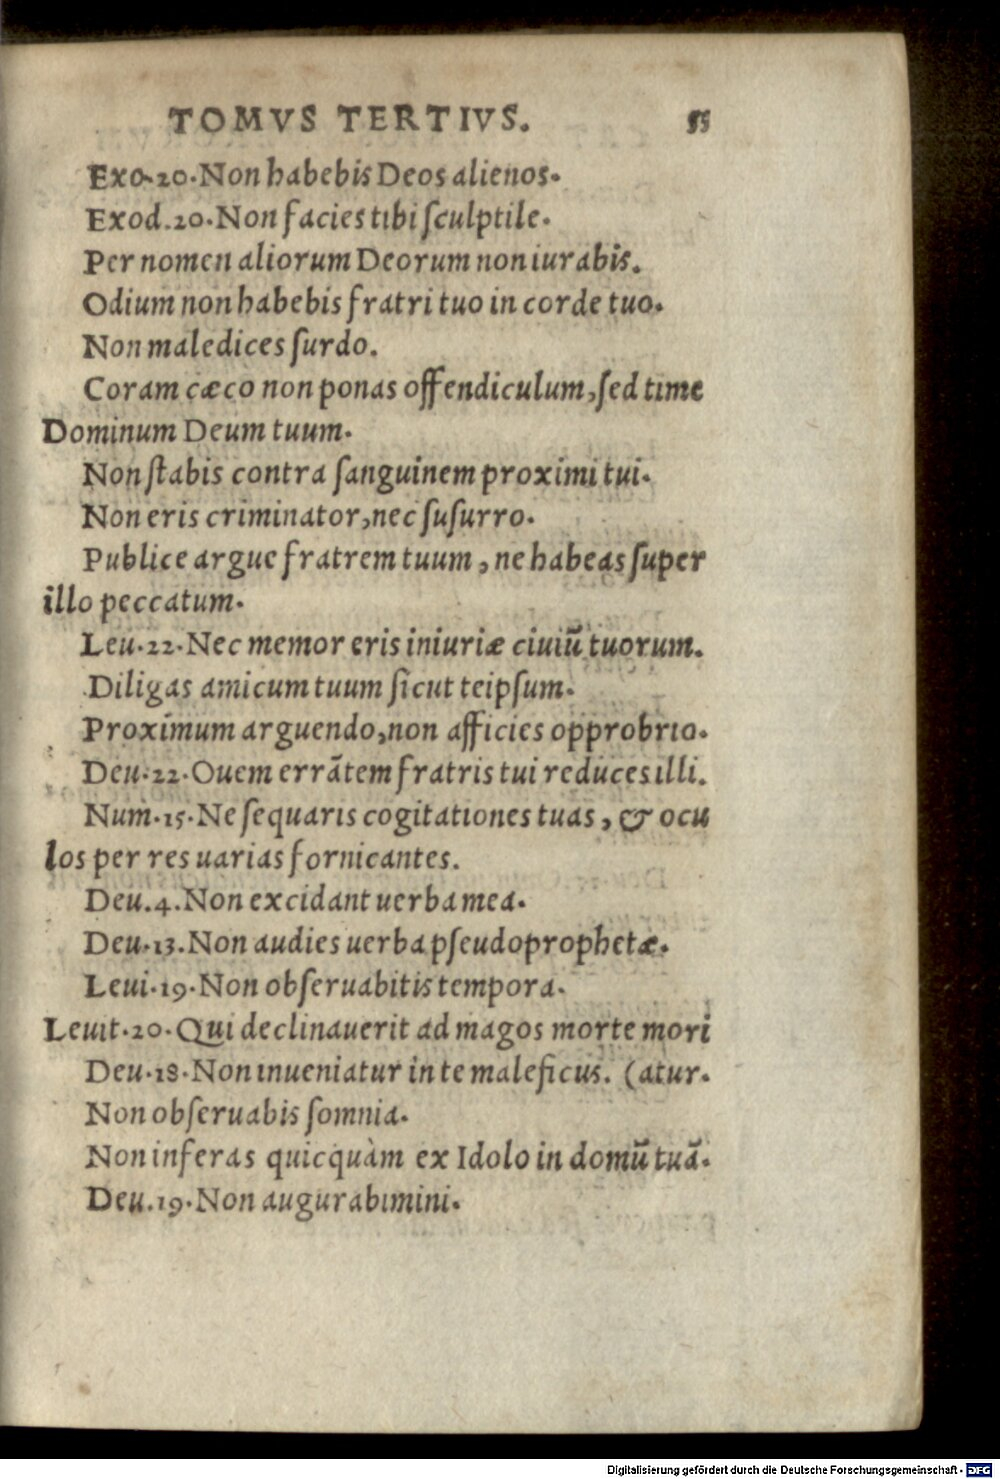 TOMVS TERTIVS. 55
Exo.20.Non habebis Deos alienos.
Exod.20.Non facies tibi ſculptile.
Per nomen aliorum Deorum non iurabis.
Odium non habebis fratri tuo in corde tuo.
Non maledices ſurdo.
Coram cæco non ponas offendiculum,ſed time
Dominum Deum tuum.
Non ſtabis contra ſanguinem proximi tui.
Non eris criminator,nec ſuſurro.
Publice argue fratrem tuum, ne habeas ſuper
illo peccatum.
Leu.22.Nec memor eris iniuriæ ciuiũ tuorum.
Diligas amicum tuum ſicut teipſum.
Proximum arguendo,non afficies opprobrio.
Deu.22.Ouem errãtem fratris tui reduces illi.
Num.15.Ne ſequaris cogitationes tuas, & ocu
los per res uarias fornicantes.
Deu.4.Non excidant uerba mea.
Deu.13.Non audies uerba pſeudoprophetæ.
Leui.19.Non obſeruabitis tempora.
Leuit.20.Qui declinauerit ad magos morte mori
Deu.18.Non inueniatur in te maleficus. (atur.
Non obſeruabis ſomnia.
Non inferas quicquàm ex Idolo in domũ tuã.
Deu.19.Non augurabimini.
Digitalisierung gefördert durch die Deutsche Forschungsgemeinschaft - DFG